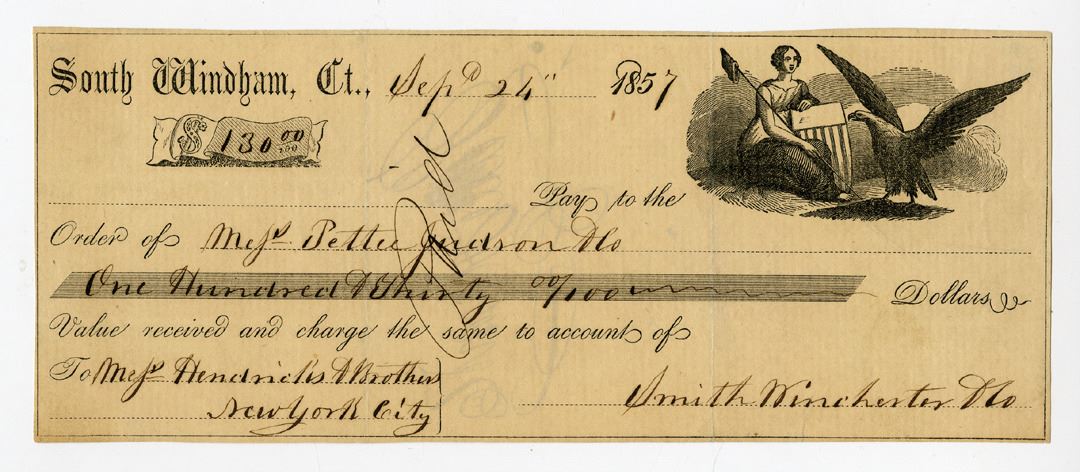 South Windham, Ct., Sepᵗ 24" 1857
$130 00/100
Pay to the
Order of Messrs Pettee Judson & Co
One Hundred & Thirty 00/100 Dollars
Value received and charge the same to account of
To Messrs Hendricks & Brothers
New York City
Smith Winchester & Co
Paid